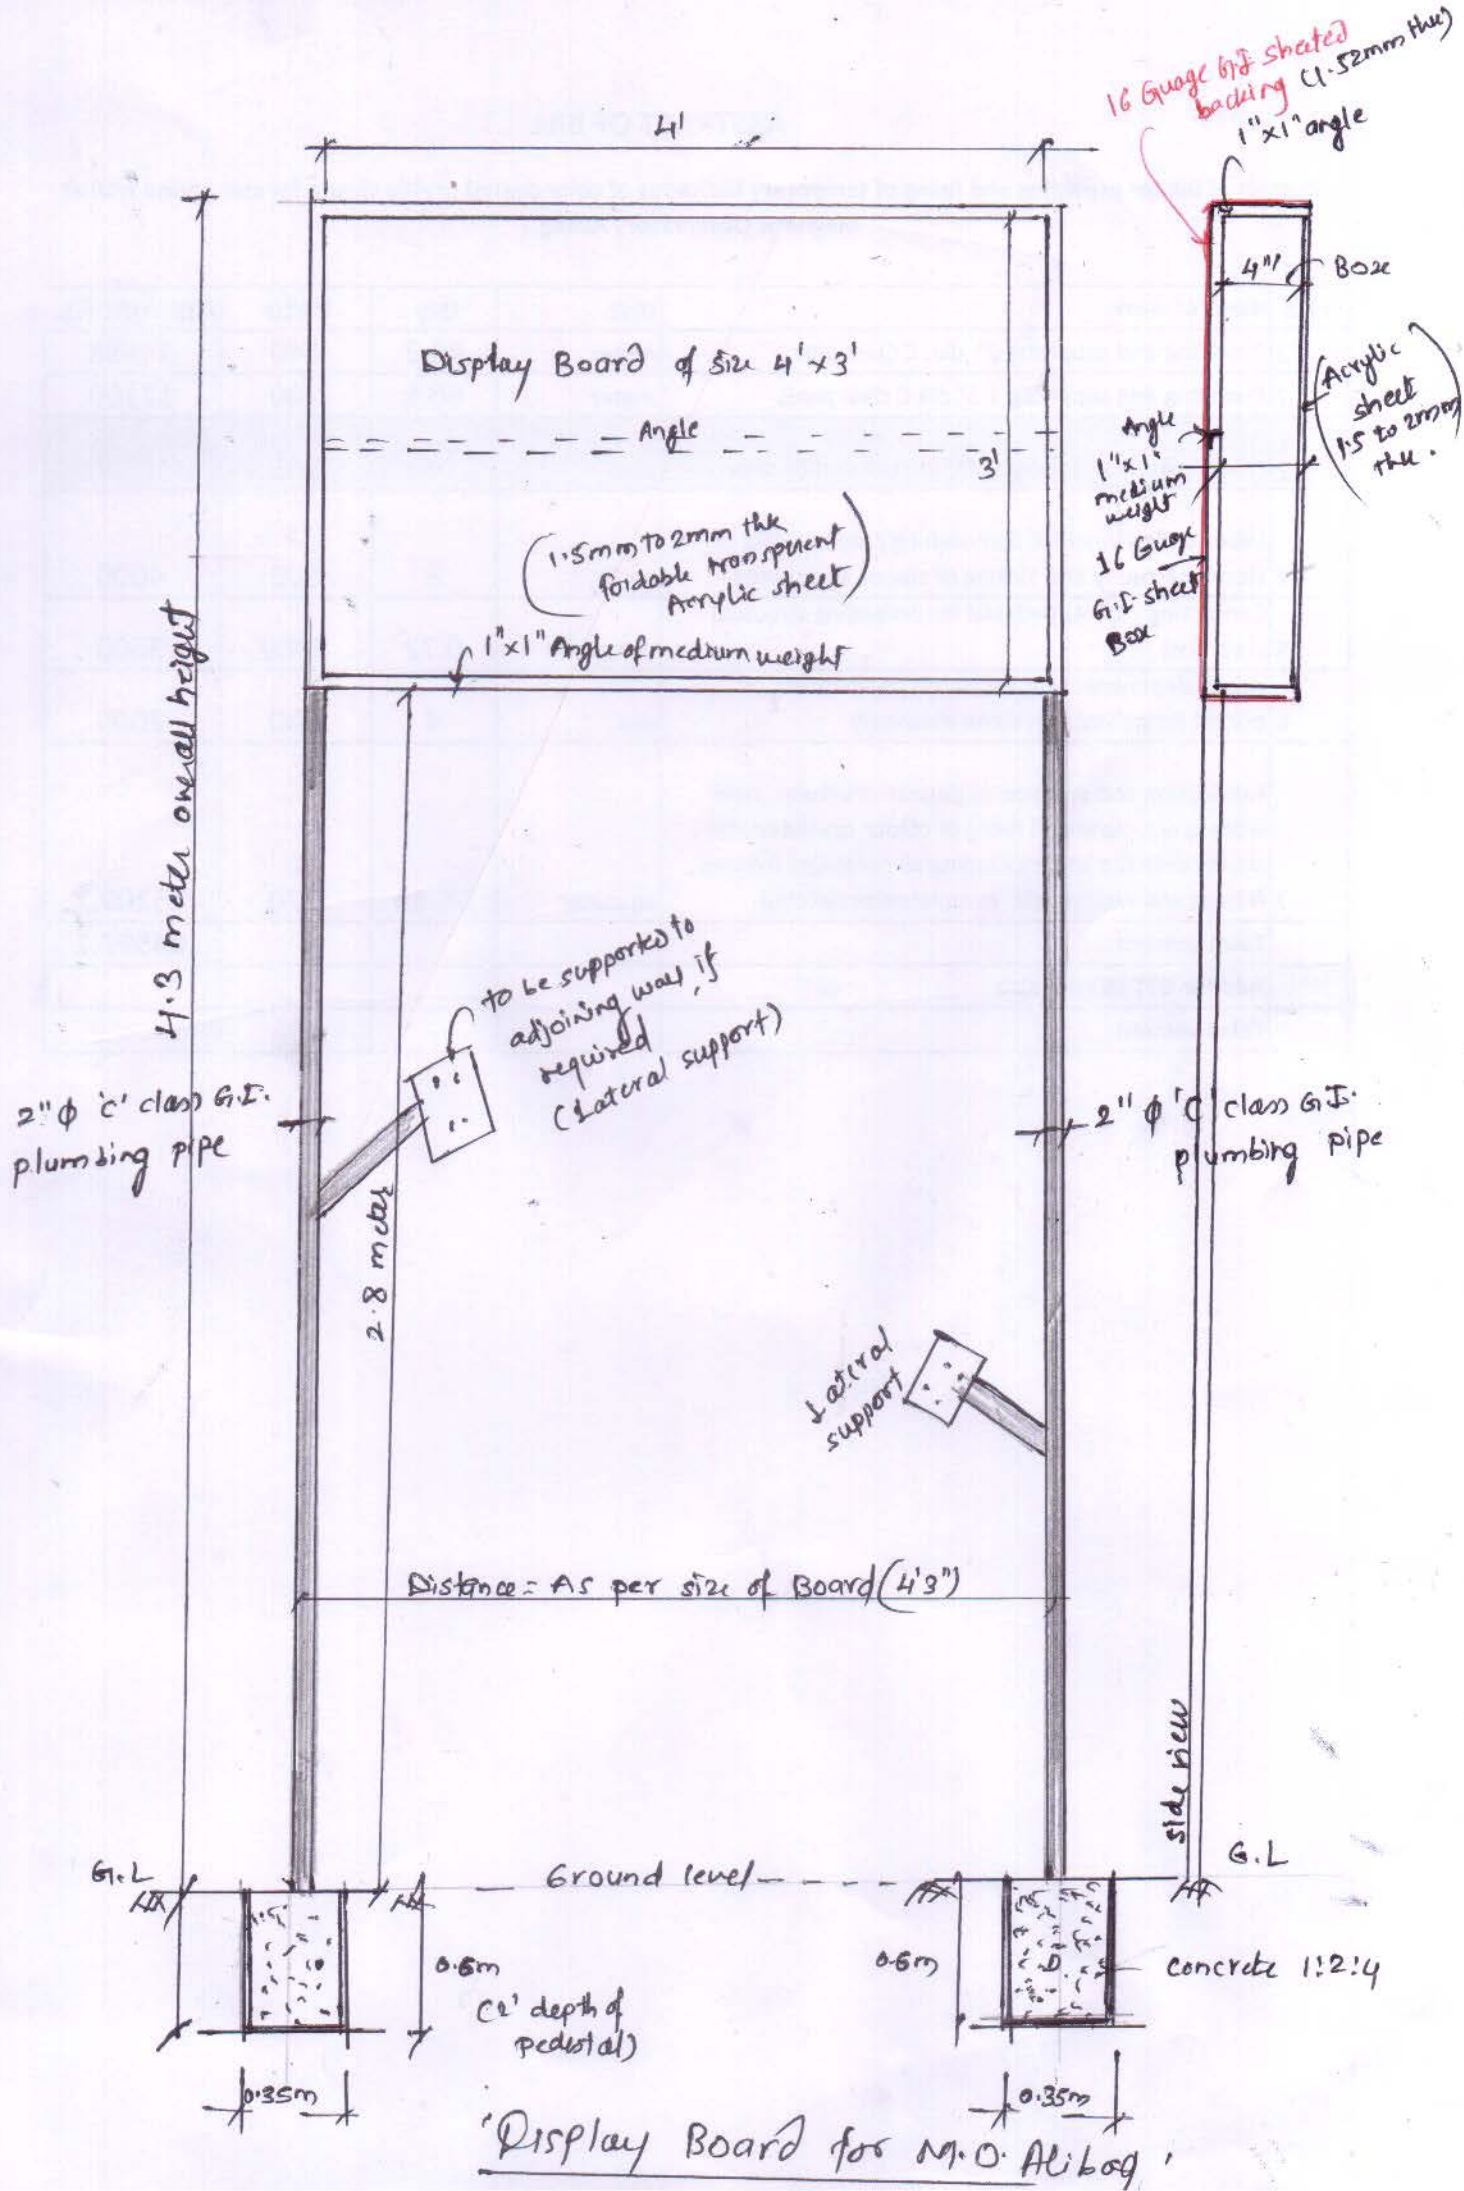 16 Guage G.I sheeted
backing (1.52mm thk)
1"x1" angle
4'
4"
Box
Display Board of size 4'x3'
Angle
3'
(Acrylic
sheet
1.5 to 2mm
thk.)
Angle
1"x1"
medium
weight
16 Guage
G.I sheet
Box
(1.5mm to 2mm thk
foldable transperent
Acrylic sheet)
1"x1" Angle of medium weight
4.3 meter overall height
to be supported to
adjoining wall, if
required
(Lateral support)
2" φ 'C' class G.I.
plumbing pipe
2" φ 'C' class G.I.
plumbing pipe
2.8 meter
Lateral
support
Distance = As per size of Board (4'3")
side view
G.L
Ground level
G.L
0.6m
(2' depth of
pedestal)
0.6m
concrete 1:2:4
0.35m
0.35m
'Display Board for M.O. Alibag'